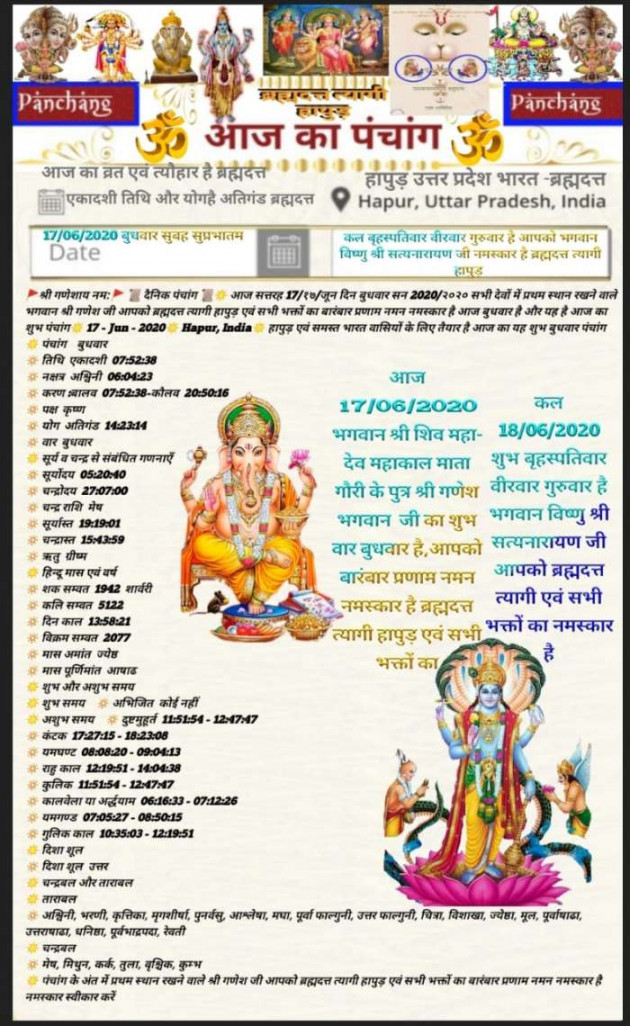 Panchang
Panchang
ब्रह्मदत्त त्यागी
हापुड़
ॐ आज का पंचांग ॐ
आज का व्रत एवं त्यौहार है ब्रह्मदत्त
एकादशी तिथि और योगहै अतिगंड ब्रह्मदत्त
हापुड़ उत्तर प्रदेश भारत -ब्रह्मदत्त
Hapur, Uttar Pradesh, India
17/06/2020 बुधवार सुबह सुप्रभातम
Date
कल बृहस्पतिवार वीरवार गुरुवार है आपको भगवान
विष्णु श्री सत्यनारायण जी नमस्कार है ब्रह्मदत्त त्यागी
हापुड़
🚩श्री गणेशाय नम:🚩 📜 दैनिक पंचांग 📜 ☀ आज सत्तरह 17/१७/जून दिन बुधवार सन 2020/२०२० सभी देवों में प्रथम स्थान रखने वाले
भगवान श्री गणेश जी आपको ब्रह्मदत्त त्यागी हापुड़ एवं सभी भक्तों का बारंबार प्रणाम नमन नमस्कार है आज बुधवार है और यह है आज का
शुभ पंचांग☀ 17 - Jun - 2020☀ Hapur, India☀ हापुड़ एवं समस्त भारत वासियों के लिए तैयार है आज का यह शुभ बुधवार पंचांग
☀ पंचांग बुधवार
☀ तिथि एकादशी 07:52:38
☀ नक्षत्र अश्विनी 06:04:23
☀ करण :बालव 07:52:38-कौलव 20:50:16
☀ पक्ष कृष्ण
☀ योग अतिगंड 14:23:14
☀ वार बुधवार
☀ सूर्य व चन्द्र से संबंधित गणनाएँ
☀ सूर्योदय 05:20:40
☀ चन्द्रोदय 27:07:00
☀ चन्द्र राशि मेष
☀ सूर्यास्त 19:19:01
☀ चन्द्रास्त 15:43:59
☀ ऋतु ग्रीष्म
☀ हिन्दू मास एवं वर्ष
☀ शक सम्वत 1942 शार्वरी
☀ कलि सम्वत 5122
☀ दिन काल 13:58:21
☀ विक्रम सम्वत 2077
☀ मास अमांत ज्येष्ठ
☀ मास पूर्णिमांत आषाढ
☀ शुभ और अशुभ समय
☀ शुभ समय ☀ अभिजित कोई नहीं
☀ अशुभ समय ☀ दुष्टमुहूर्त 11:51:54 - 12:47:47
☀ कंटक 17:27:15 - 18:23:08
☀ यमघण्ट 08:08:20 - 09:04:13
☀ राहु काल 12:19:51 - 14:04:38
☀ कुलिक 11:51:54 - 12:47:47
☀ कालवेला या अर्द्धयाम 06:16:33 - 07:12:26
☀ यमगण्ड 07:05:27 - 08:50:15
☀ गुलिक काल 10:35:03 - 12:19:51
☀ दिशा शूल
☀ दिशा शूल उत्तर
☀ चन्द्रबल और ताराबल
☀ ताराबल
☀ अश्विनी, भरणी, कृत्तिका, मृगशीर्षा, पुनर्वसु, आश्लेषा, मघा, पूर्वा फाल्गुनी, उत्तर फाल्गुनी, चित्रा, विशाखा, ज्येष्ठा, मूल, पूर्वाषाढा,
उत्तराषाढा, धनिष्ठा, पूर्वभाद्रपदा, रेवती
☀ चन्द्रबल
☀ मेष, मिथुन, कर्क, तुला, वृश्चिक, कुम्भ
☀ पंचांग के अंत में प्रथम स्थान रखने वाले श्री गणेश जी आपको ब्रह्मदत्त त्यागी हापुड़ एवं सभी भक्तों का बारंबार प्रणाम नमन नमस्कार है
नमस्कार स्वीकार करें
आज
17/06/2020
भगवान श्री शिव महा-
देव महाकाल माता
गौरी के पुत्र श्री गणेश
भगवान जी का शुभ
वार बुधवार है,आपको
बारंबार प्रणाम नमन
नमस्कार है ब्रह्मदत्त
त्यागी हापुड़ एवं सभी
भक्तों का
कल
18/06/2020
शुभ बृहस्पतिवार
वीरवार गुरुवार है
भगवान विष्णु श्री
सत्यनारायण जी
आपको ब्रह्मदत्त
त्यागी एवं सभी
भक्तों का नमस्कार
है